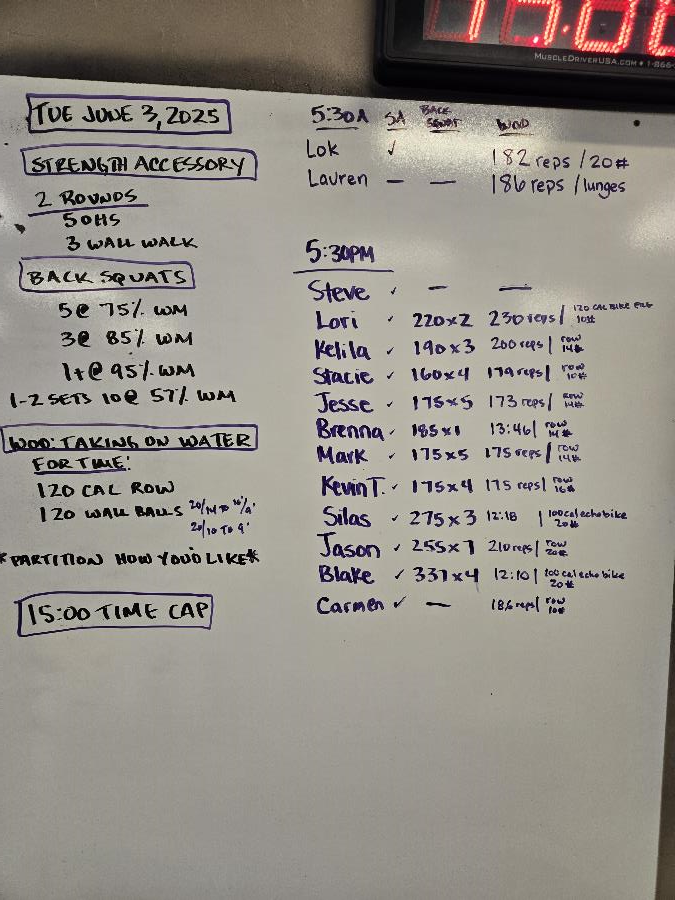 15:00
MUSCLEDRIVERUSA.COM • 1-866-
TUE JUNE 3, 2025
STRENGTH ACCESSORY
2 ROUNDS
5 OHS
3 WALL WALK
BACK SQUATS
5 @ 75% WM
3 @ 85% WM
1+ @ 95% WM
1-2 SETS 10 @ 57% WM
WOD: TAKING ON WATER
FOR TIME:
120 CAL ROW
120 WALL BALLS 20/14 TO 10'/9'
20/10 TO 9'
*PARTITION HOW YOU'D LIKE*
15:00 TIME CAP
5:30A SA BACK SQUAT WOD
Lok ✓ 182 reps / 20#
Lauren — — 186 reps / lunges
5:30PM
Steve ✓ — —
Lori ✓ 220x2 230 reps / 120 CAL BIKE ERG 10#
Kelila ✓ 190x3 200 reps / row 14#
Stacie ✓ 160x4 179 reps / row 10#
Jesse ✓ 175x5 173 reps / row 14#
Brenna ✓ 185x1 13:46 / row 14#
Mark ✓ 175x5 175 reps / row 14#
Kevin T. ✓ 175x4 175 reps / row 16#
Silas ✓ 275x3 12:18 | 100 cal echo bike 20#
Jason ✓ 255x7 210 reps / row 20#
Blake ✓ 337x4 12:10 | 100 cal echo bike 20#
Carmen ✓ — 186 reps / row 10#